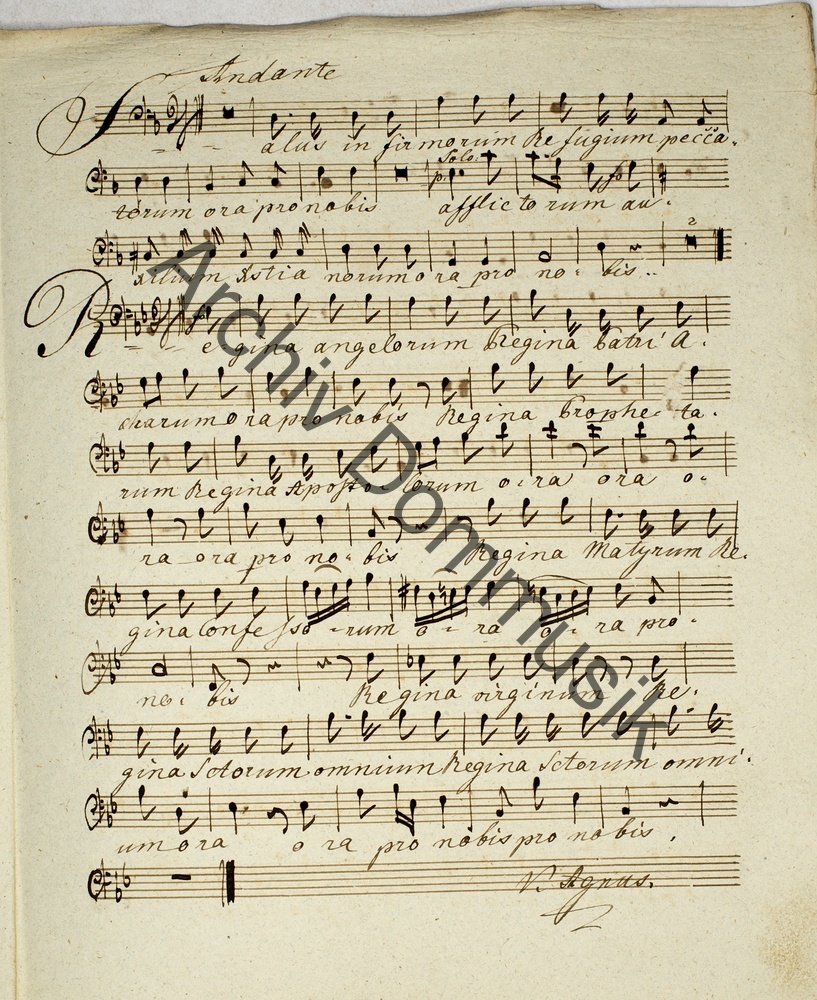 Andante
Salus in firmorum Refugium pecca-
torum ora pro nobis Solo: p: afflicto rum au-
xilium Xstia norum ora pro no- bis..
2
Re-gina angelorum Regina Patri A-
charum ora pro nobis Regina Prophe- ta-
rum Regina Aposto- lorum o-ra ora o-
ra ora pro no- bis Regina Matyrum Re-
gina Confesso-rum o-ra o-ra pro-
no- bis Regina virginum Re-
gina Sctorum omnium Regina Sctorum omni-
um ora ora pro nobis pro nobis.
V. Agnus.
Archiv Dommusik